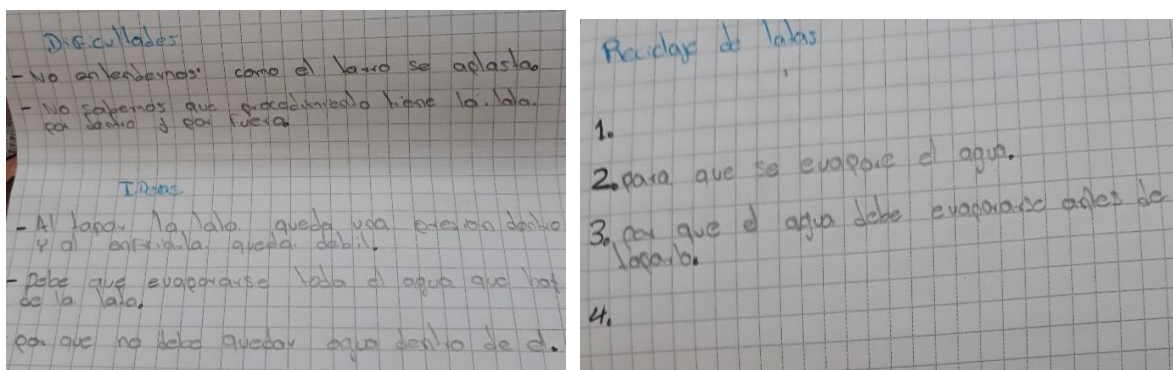 Dificultades
- No entendemos como el tarro se aplasta.
- No sabemos que procedimiento tiene la lata.
por dentro y por fuera
Ideas
- Al tapar la lata queda una presion dentro
y al enfriarla queda debil.
- Debe que evaporarse toda el agua que
de la lata.
por que no debe quedar agua dentro de el.
Reciclaje de latas
1.
2. para que se evapore el agua.
3. por que el agua debe evaporarse antes de
taparlo.
4.